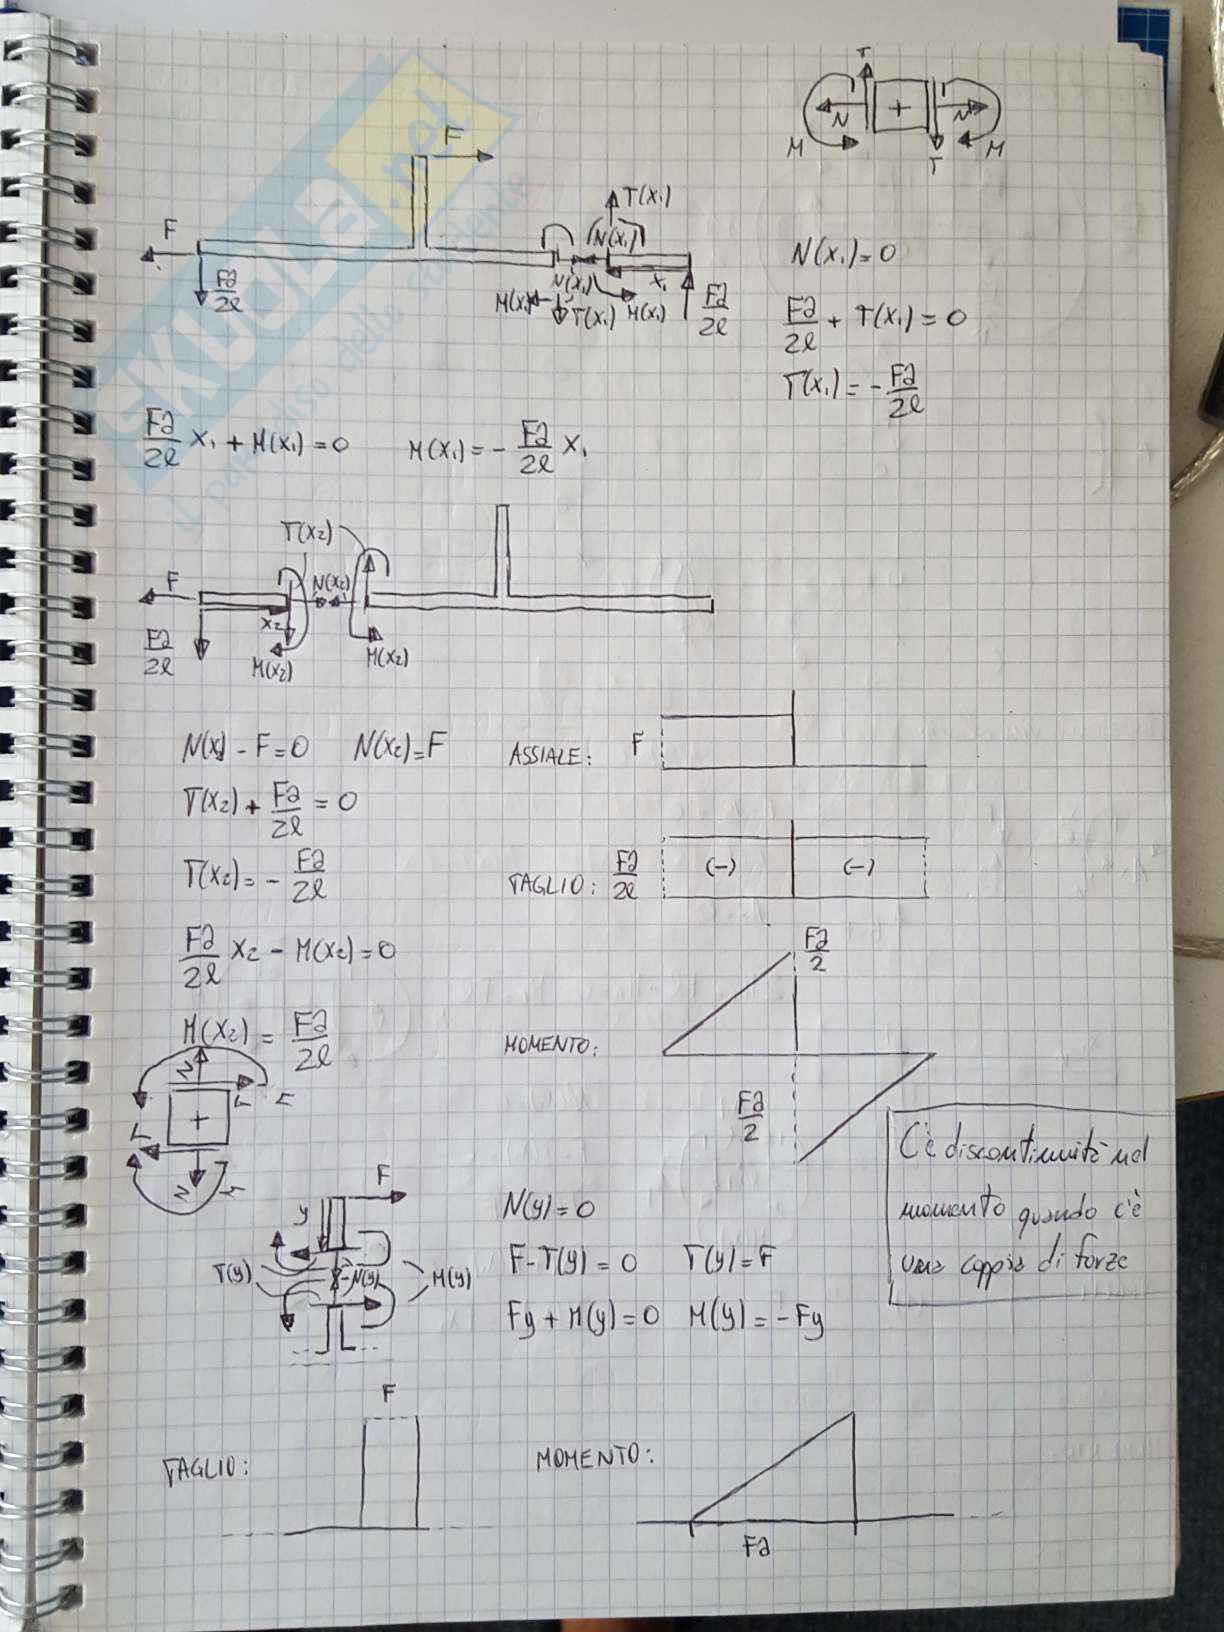 SKUOLA.net
il paradiso dello studente
T
N
N
M
M
T
F
T(x₁)
F
N(x₁)
N(x₁)
x₁
Fa/2l
M(x₁)
T(x₁)
M(x₁)
Fa/2l
N(x₁)=0
Fa/2l + T(x₁) = 0
T(x₁) = - Fa/2l
Fa/2l x₁ + M(x₁) = 0
M(x₁) = - Fa/2l x₁
T(x₂)
F
N(x₂)
x₂
Fa/2l
M(x₂)
M(x₂)
N(x) - F = 0
N(x₂) = F
ASSIALE:
F
T(x₂) + Fa/2l = 0
T(x₂) = - Fa/2l
TAGLIO:
Fa/2l
(-)
(-)
Fa/2l x₂ - M(x₂) = 0
Fa/2
M(x₂) = Fa/2l
MOMENTO:
Fa/2
N
T
M
T
N
M
C'è discontinuità nel
momento quando c'è
una coppia di forze
F
y
T(y)
N(y)
M(y)
N(y) = 0
F - T(y) = 0
T(y) = F
Fy + M(y) = 0
M(y) = - Fy
F
TAGLIO:
MOMENTO:
Fa